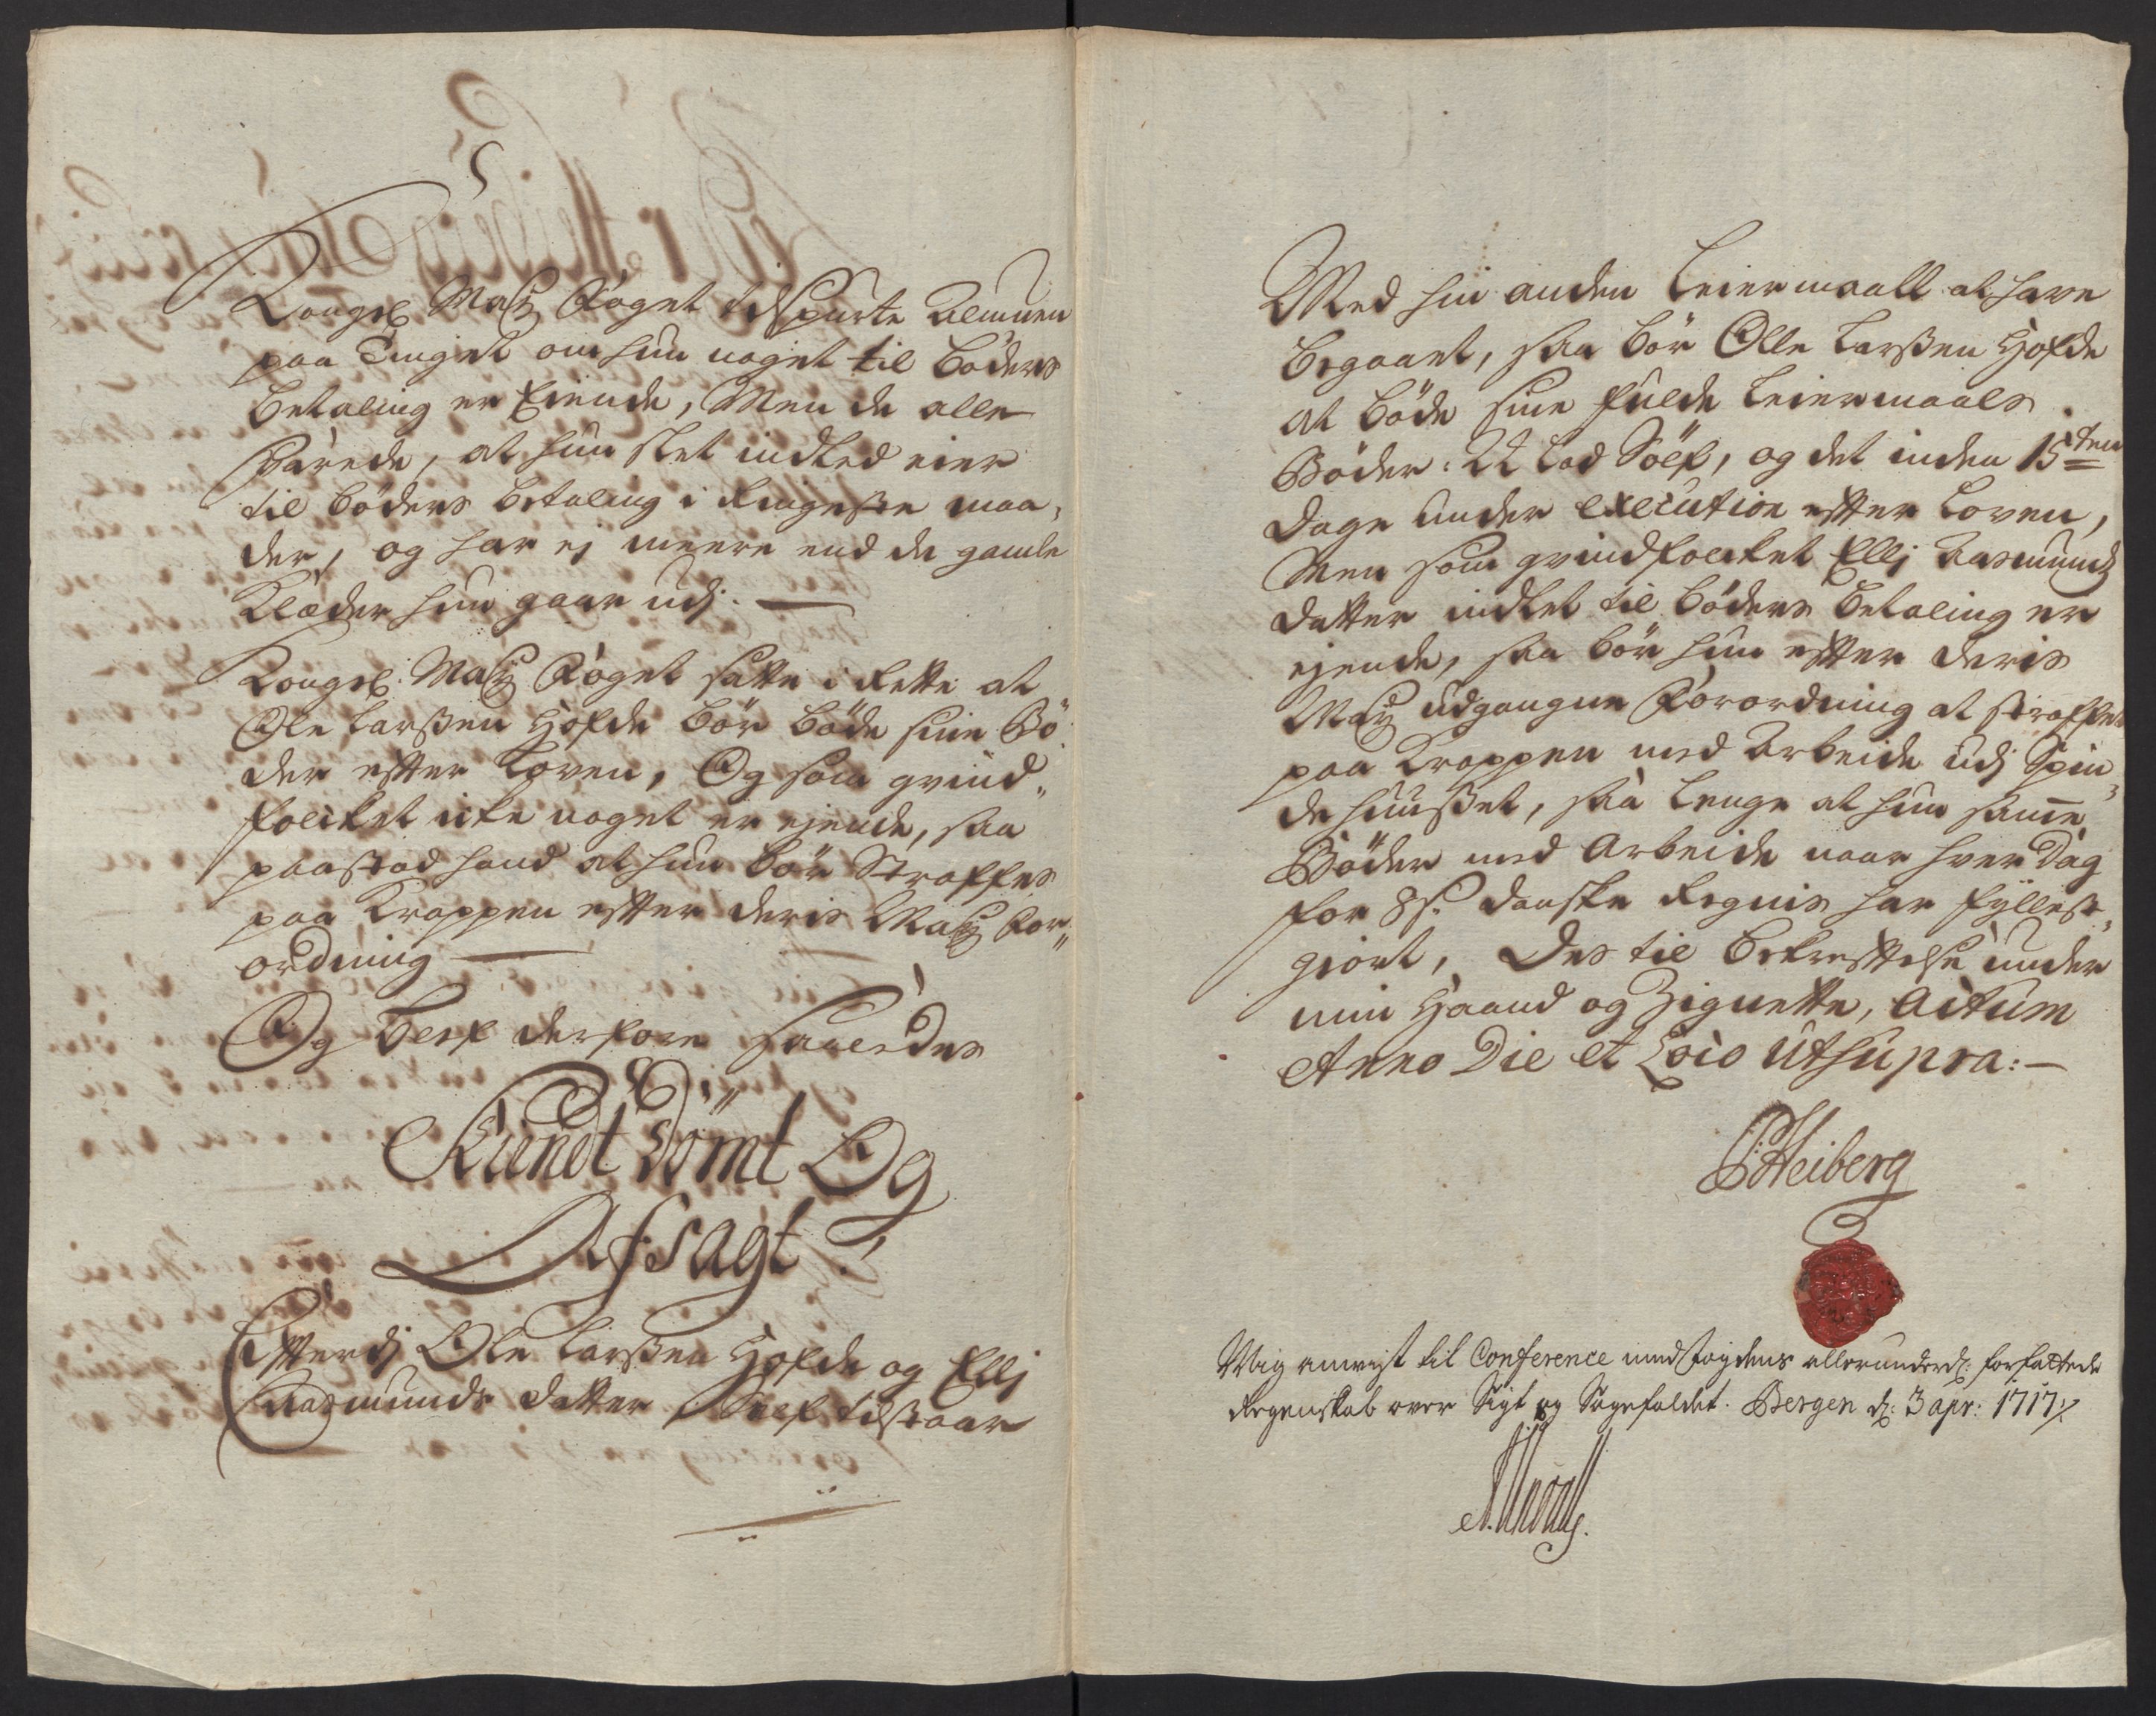 Kongel Maÿz Foget tilspurte Almuen
paa Tinget om hun noget til bøders
betaling er Eiende, Men de alle
svarede, at hun slet indted eier
til bøders betaling i Ringeste maa,
der, og har ej meere end de gamle
Klæder hun gaar udj. —
Kongel: Maÿz Foget satte i Rette at
Ole Larssen Hofde bør bøde sine Bø
der efter Loven, Og som qvind„
folcket icke noget er ejende, saa
paastod hand at hun bør Straffes
paa Kroppen efter deris Maÿz For„
ordning —
Og blef derfore saaledes
Kiendt Dömt Og
Afsagt:
Efterdj Ole Larssen Hofde og Ellj
Rasmunds datter Self tilstaar
Med hin anden Leiermaall at have
begaaet, saa bør Olle Larssen Hofde
at bøde sine fulde Leiermaals
Bøder: 12 Lod Sölf, og det inden 15ten
dage under execution efter Loven,
Men som qvindfolcket Ellj Rasmunds
datter indtet til bøders betaling er
ejende, saa bør hun efter deris
Maÿz udgangne Forordning at straffes
paa Kroppen med Arbeide udj Spin„
de huusset, saa lenge at hun samme
Bøder med Arbeide naar hver dag
for 8 s. danske Regnis har fyllest„
giort, Des til bekreftelse under
min Haand og Zignette, Actum
Anno Die et Loco Utsupra:—
Heiberg
Mig anvist til Conference med fogdens allerunderd: forfattede
Regenskab over Sigt og Sagefaldet. Bergen d: 3 apr: 1717